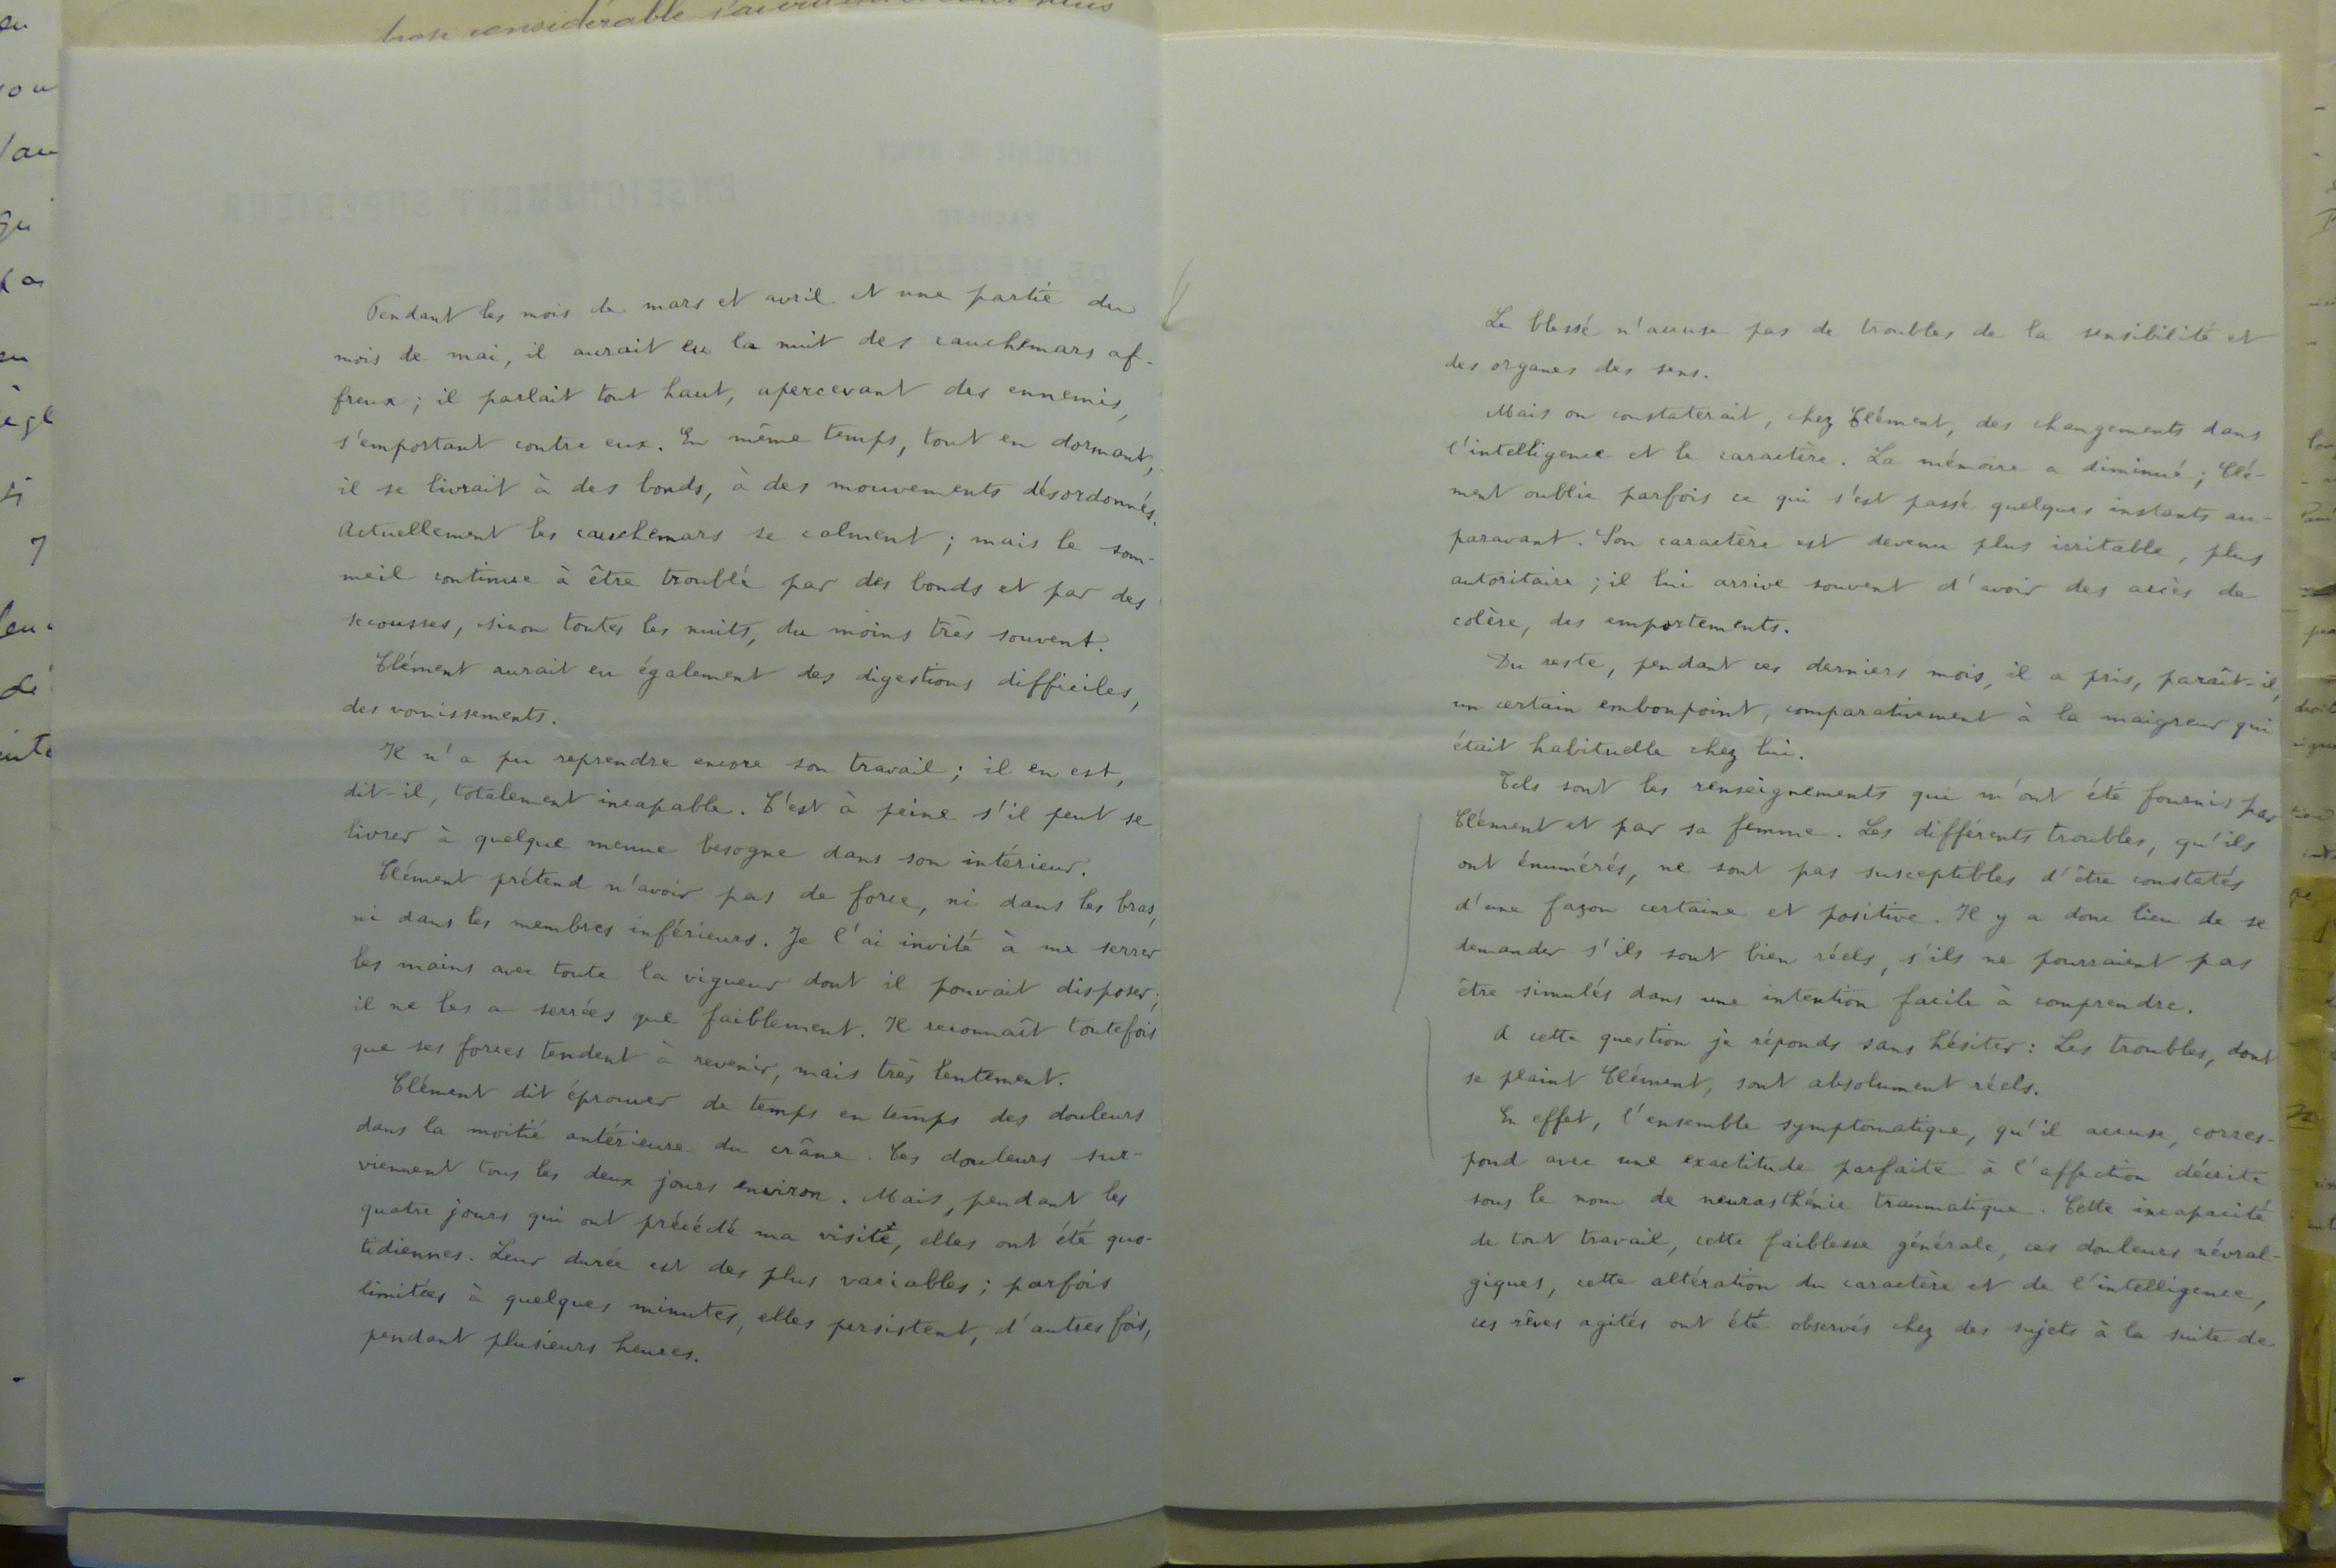 bron considérable
Pendant les mois de mars et avril et une partie du
mois de mai, il aurait eu la nuit des cauchemars af-
freux ; il parlait tout haut, apercevant des ennemis,
s'emportant contre eux. En même temps, tout en dormant,
il se livrait à des bonds, à des mouvements désordonnés.
Actuellement les cauchemars se calment ; mais le som-
meil continue à être troublé par des bonds et par des
secousses, sinon toutes les nuits, du moins très souvent.
Clément aurait eu également des digestions difficiles,
des vomissements.
Il n'a pu reprendre encore son travail ; il en est,
dit-il, totalement incapable. C'est à peine s'il peut se
livrer à quelque menue besogne dans son intérieur.
Clément prétend n'avoir pas de force, ni dans les bras,
ni dans les membres inférieurs. Je l'ai invité à me serrer
les mains avec toute la vigueur dont il pouvait disposer ;
il ne les a serrées que faiblement. Il reconnaît toutefois
que ses forces tendent à revenir, mais très lentement.
Clément dit éprouver de temps en temps des douleurs
dans la moitié antérieure du crâne. Ces douleurs sur-
viennent tous les deux jours environ. Mais, pendant les
quatre jours qui ont précédé ma visite, elles ont été quo-
tidiennes. Leur durée est des plus variables ; parfois
limitées à quelques minutes, elles persistent, d'autres fois,
pendant plusieurs heures.
Le blessé n'accuse pas de troubles de la sensibilité et
des organes des sens.
Mais on constaterait, chez Clément, des changements dans
l'intelligence et le caractère. La mémoire a diminué ; Clé-
ment oublie parfois ce qui s'est passé quelques instants au-
paravant. Son caractère est devenu plus irritable, plus
autoritaire ; il lui arrive souvent d'avoir des accès de
colère, des emportements.
Du reste, pendant ces derniers mois, il a pris, paraît-il,
un certain embonpoint, comparativement à la maigreur qui
était habituelle chez lui.
Tels sont les renseignements qui m'ont été fournis par
Clément et par sa femme. Les différents troubles, qu'ils
ont énumérés, ne sont pas susceptibles d'être constatés
d'une façon certaine et positive. Il y a donc lieu de se
demander s'ils sont bien réels, s'ils ne pourraient pas
être simulés dans une intention facile à comprendre.
A cette question je réponds sans hésiter : Les troubles, dont
se plaint Clément, sont absolument réels.
En effet, l'ensemble symptomatique, qu'il accuse, corres-
pond avec une exactitude parfaite à l'affection décrite
sous le nom de neurasthénie traumatique. Cette incapacité
de tout travail, cette faiblesse générale, ces douleurs névral-
giques, cette altération du caractère et de l'intelligence,
ces rêves agités ont été observés chez des sujets à la suite de